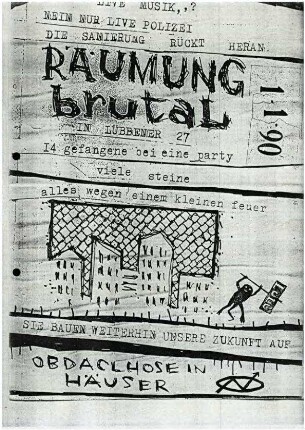 LIVE MUSIK,,?
NEIN NUR LIVE POLIZEI
DIE SANIERUNG RÜCKT HERAN
RÄUMUNG
brutal
1 1 90
IN LÜBBENER 27
14 gefangene bei eine party
viele steine
alles wegen einem kleinen feuer
SIE BAUEN WEITERHIN UNSERE ZUKUNFT AUF
OBDACHLOSE IN
HÄUSER